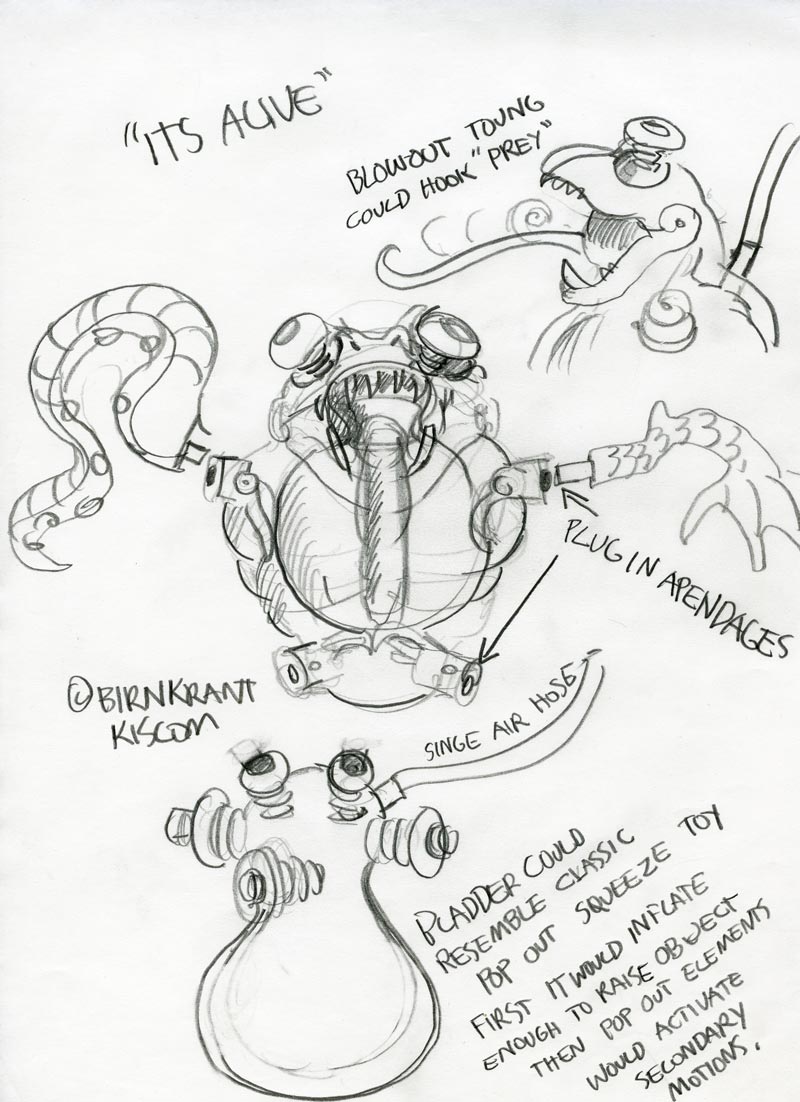 "ITS ALIVE"
BLOWOUT TOUNG
COULD HOOK "PREY"
PLUG IN APENDAGES
©BIRNKRANT
KISCOM
SINGE AIR HOSE
BLADDER COULD
RESEMBLE CLASSIC
POP OUT SQUEEZE TOY
FIRST IT WOULD INFLATE
ENOUGH TO RAISE OBJECT
THEN POP OUT ELEMENTS
WOULD ACTIVATE
SECONDARY
MOTIONS.